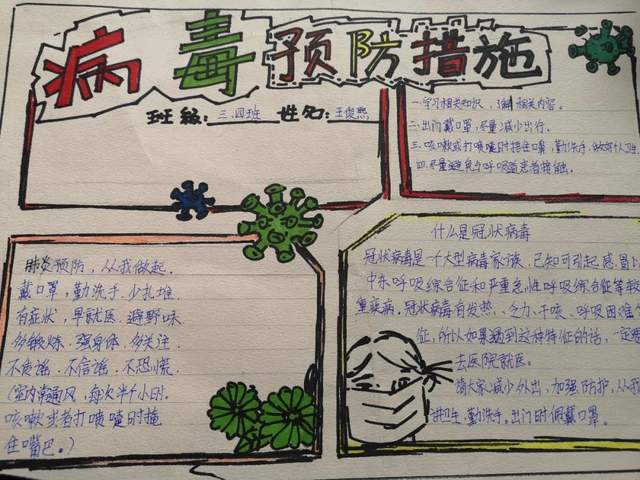 病毒预防措施
班级：三.四班 姓名：王俊熙
一.学习相关知识， 相关内容。
二.出门戴口罩，尽量减少出行。
三.咳嗽或打喷嚏时捂住嘴，勤洗手，做好个人卫
四.尽量避免与呼吸道患者接触。
肺炎预防，从我做起.
戴口罩，勤洗手.少扎堆
有症状，早就医.避野味
多锻炼.强身体.多关注
不传谣.不信谣.不恐慌.
(室内常通风，每次半个小时.
咳嗽或者打喷嚏时掩
住嘴巴。)
什么是冠状病毒
冠状病毒是一个大型病毒家族.已知可引起感冒
中东呼吸综合征和严重急性呼吸综合征等较
重疾病.冠状病毒有发热、乏力、干咳、呼吸困难
征,所以如果遇到这种特征的话，一定
去医院就医。
请大家减少外出，加强防护，从我
讲卫生.勤洗手.出门时佩戴口罩。